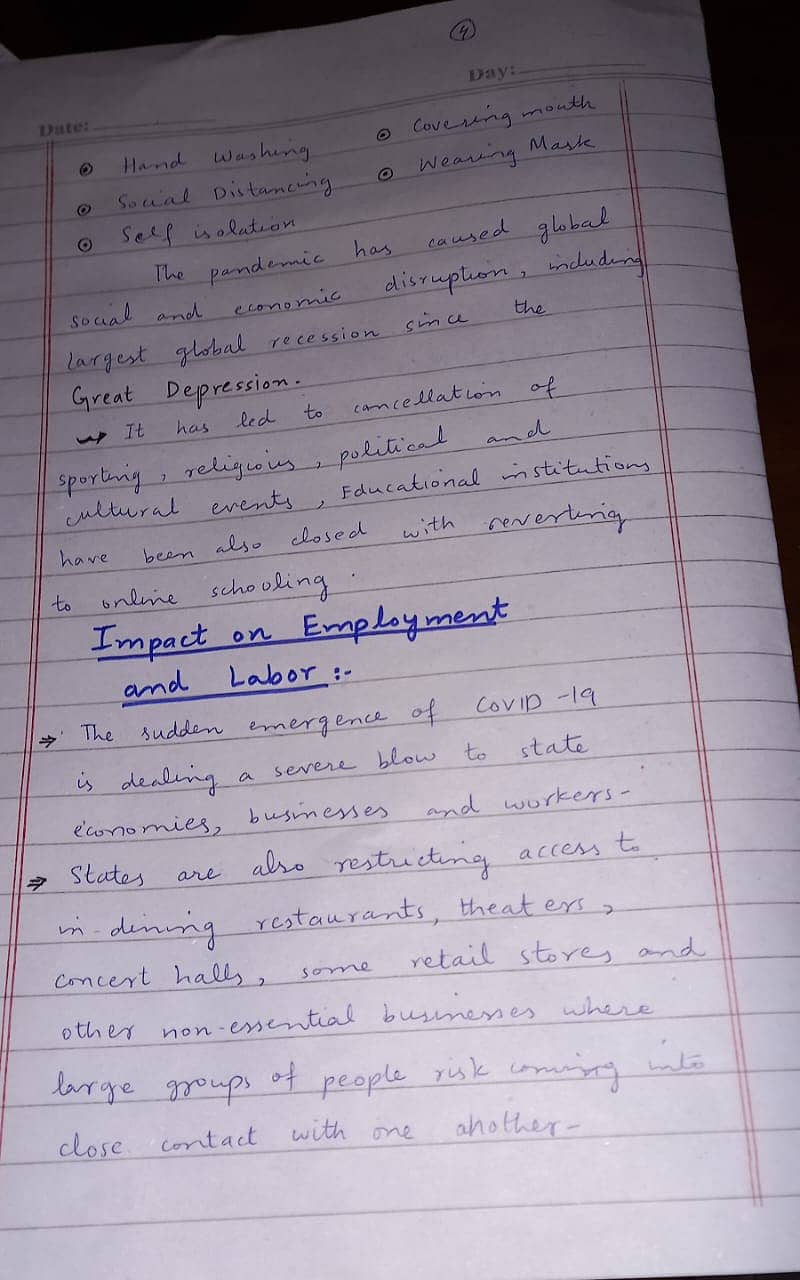 4
Date: Day:
⊙ Hand Washing ⊙ Covering mouth
⊙ Social Distancing ⊙ Wearing Mask
⊙ Self isolation
The pandemic has caused global
social and economic disruption, including
largest global recession since the
Great Depression.
→ It has led to cancellation of
sporting, religious, political and
cultural events, Educational institutions
have been also closed with reverting
to online schooling.
Impact on Employment
and Labor :-
⇒ The sudden emergence of COVID-19
is dealing a severe blow to state
economies, businesses and workers-
⇒ States are also restricting access to
in-dining restaurants, theaters,
concert halls, some retail stores and
other non-essential businesses where
large groups of people risk coming into
close contact with one another-